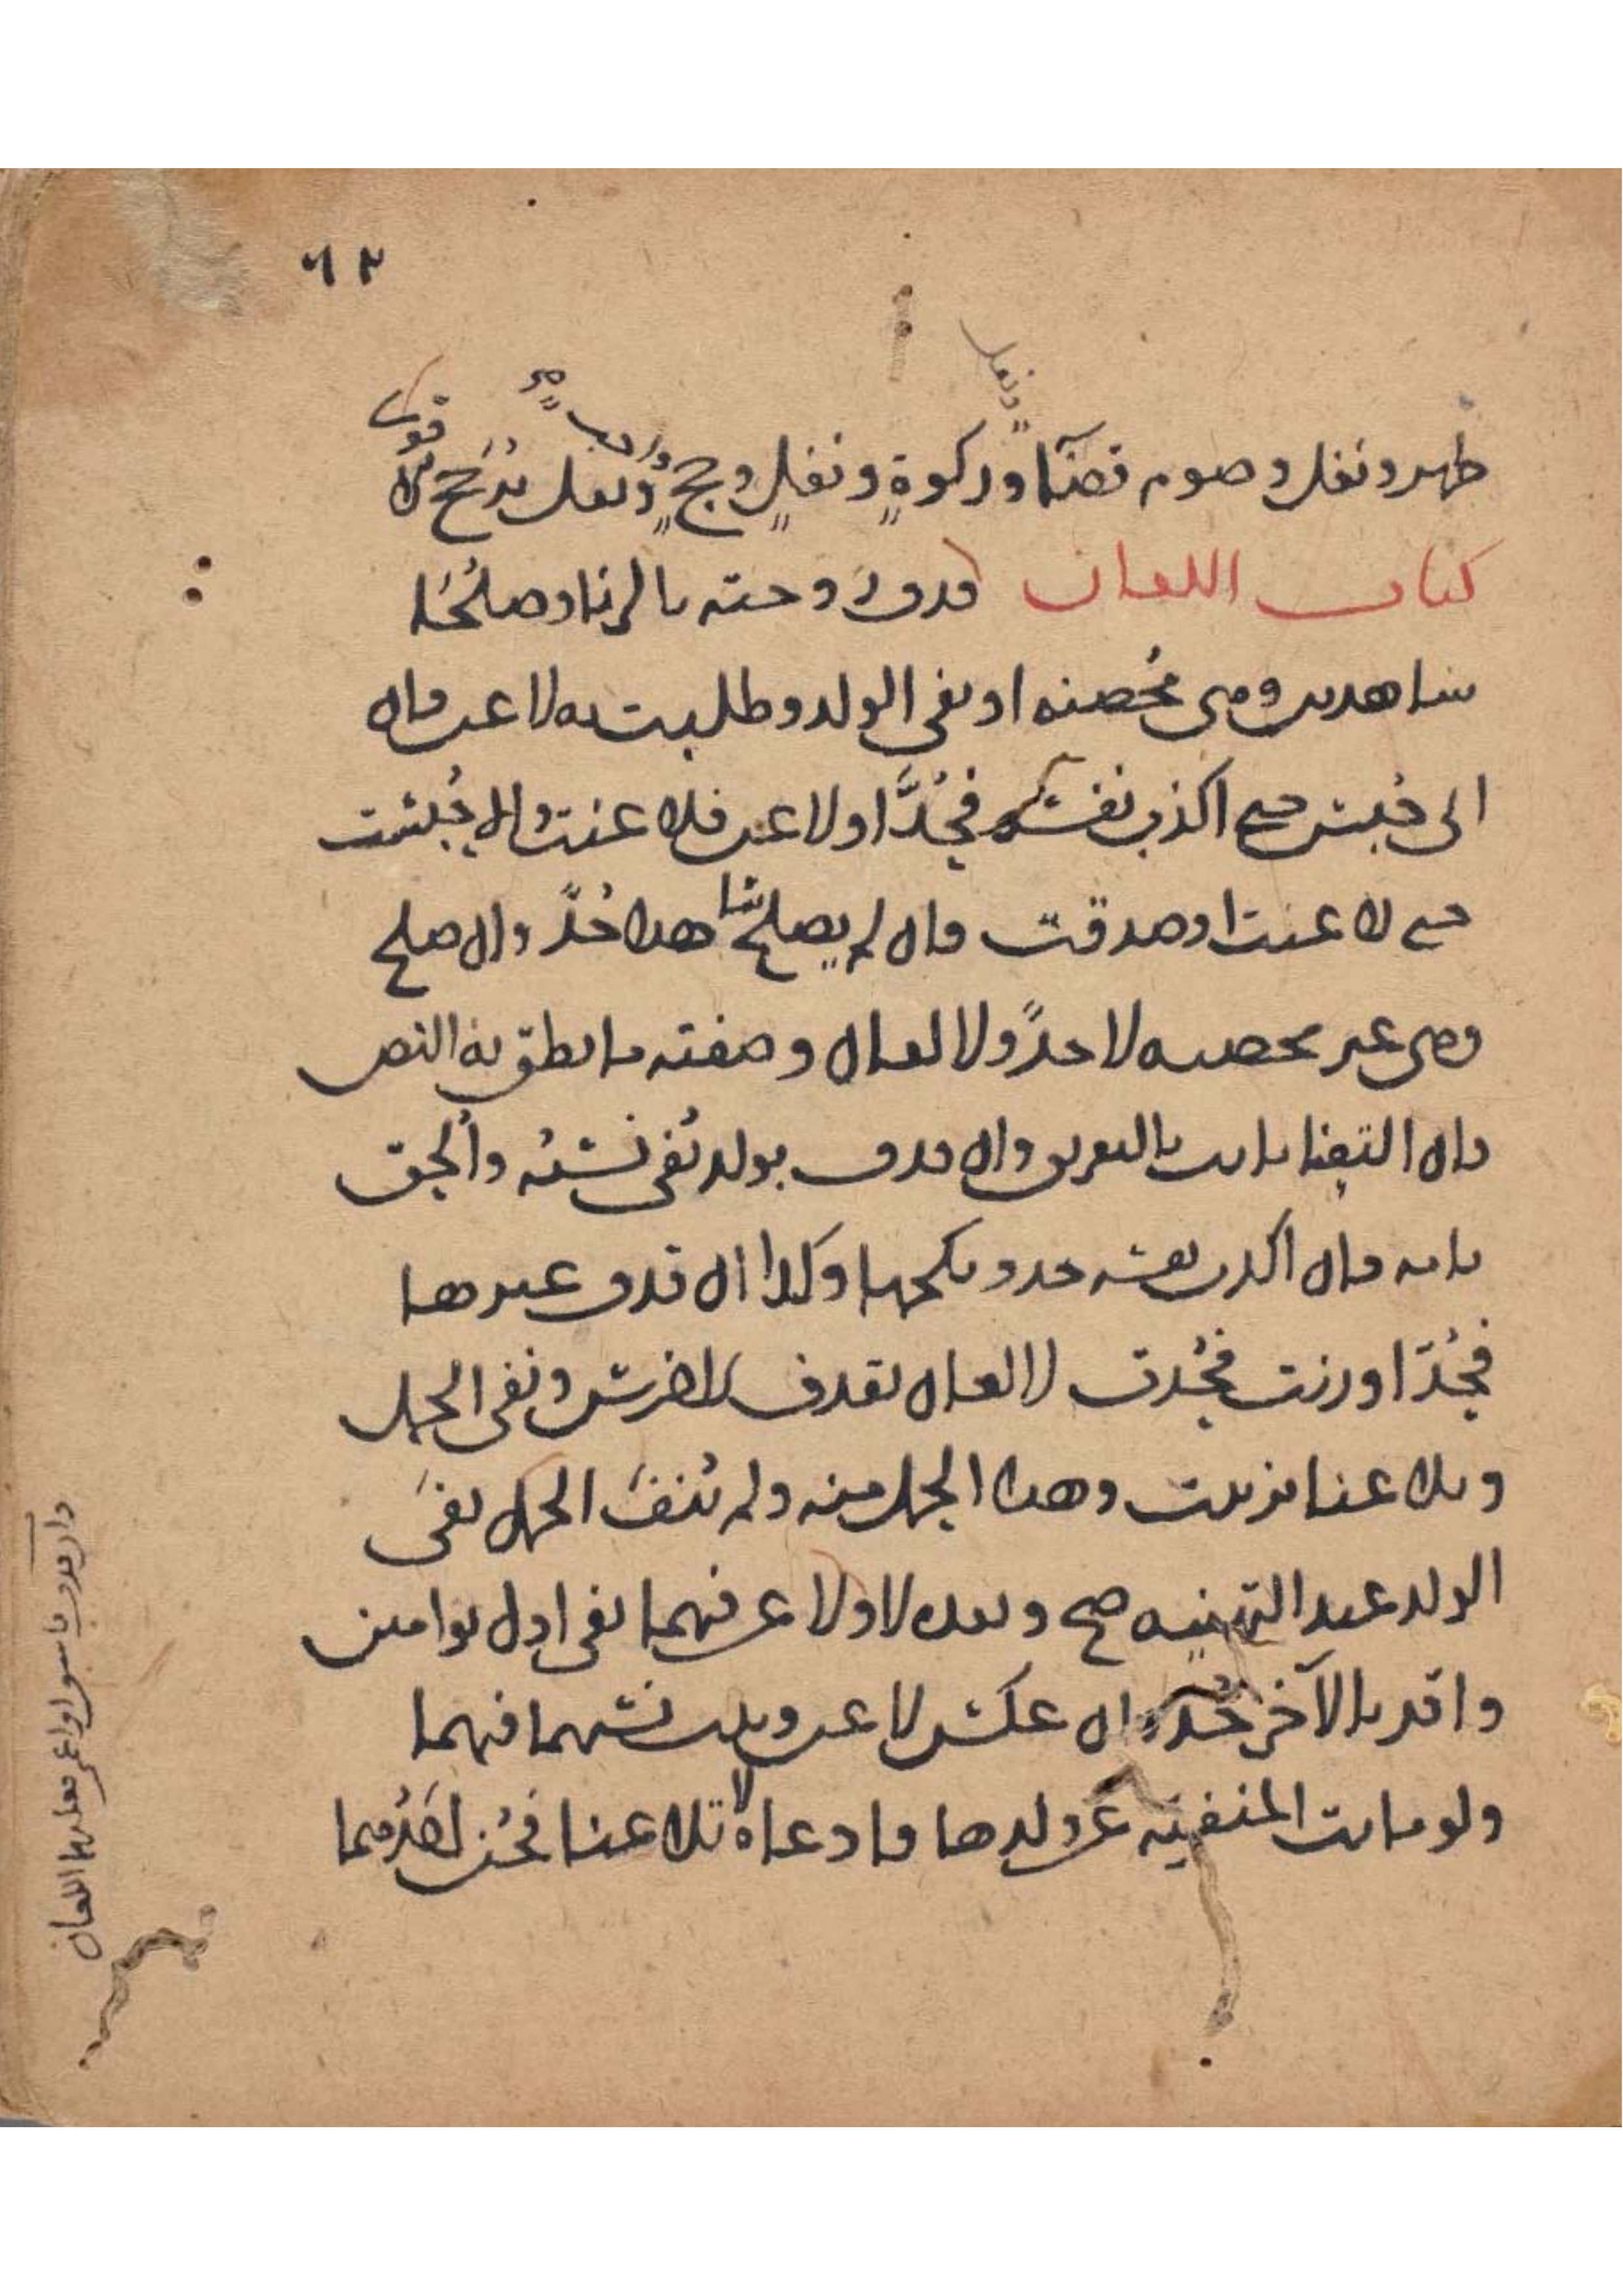 ٦٢
ونفل
ظهر ونفل وصوم قضآ وزكوة ونفل وحج ونفل يرجح قوى
كتاب اللعان قذف زوجته بالزنا وصلحا
شاهدين وهى محصنه او نفى الولد وطلبت به لاعن فان
ابى حبس حتى اكذب نفسه فيحد او لاعن فلاعنت والا حبست
حتى لاعنت او صدقت فان لم يصلح شاهدا حد وان صلح
وهى غير محصنه لا حد ولا لعان وصفته ما نطق به النص
فان التعنا بانت بالتفريق وان قذف بولد نفى نسبه والحق
بامه فان اكذب نفسه حد وينكحها وكذا ان قذف غيرها
فيحد او زنت فحدت لا لعان بقذف الاخرس ونفى الحمل
وتلاعنا بزنيت وهذا الحمل منه ولم ينف الحمل نفى
الولد عند التهنيه صح وبعده لا ولاعن فيهما نفى اول توامين
واقر بالآخر حد وان عكس لاعن ويثبت نسبهما فيهما
ولو ماتت المنفيه عن ولدها فادعاه لا تلاعنا فحق